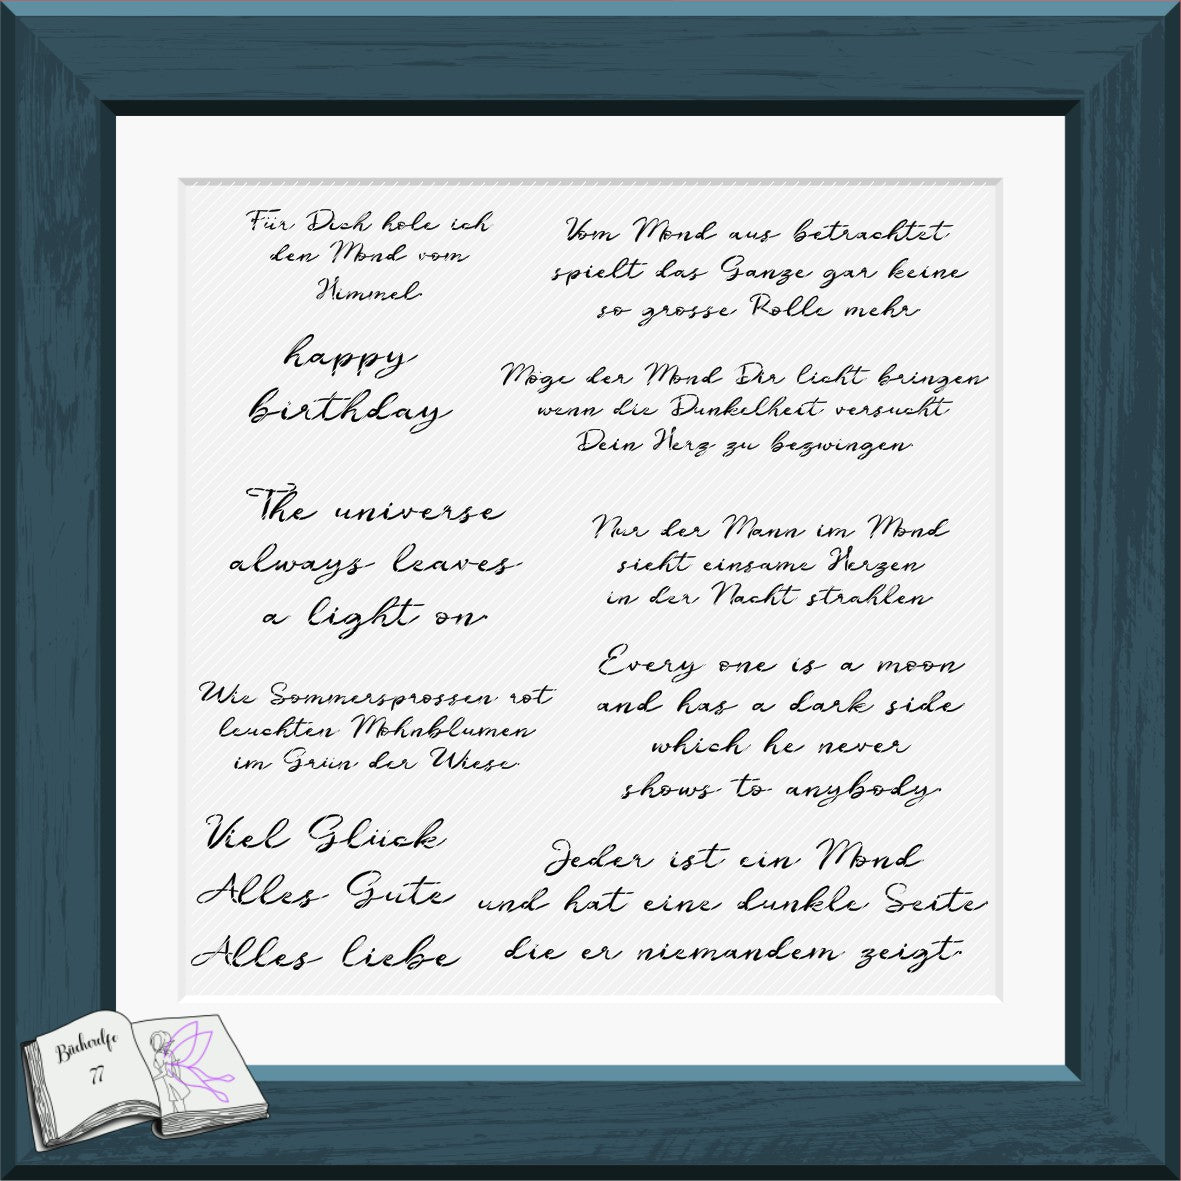 Für Dich hole ich
den Mond vom
Himmel.
happy
birthday
The universe
always leaves
a light on.
Wie Sommersprossen rot
leuchten Mohnblumen
im Grün der Wiese.
Viel Glück
Alles Gute
Alles liebe
Vom Mond aus betrachtet
spielt das Ganze gar keine
so grosse Rolle mehr
Möge der Mond Dir licht bringen
wenn die Dunkelheit versucht
Dein Herz zu bezwingen.
Nur der Mann im Mond
sieht einsame Herzen
in der Nacht strahlen.
Every one is a moon
and has a dark side
which he never
shows to anybody.
Jeder ist ein Mond
und hat eine dunkle Seite
die er niemandem zeigt.
Bücherelfe
77